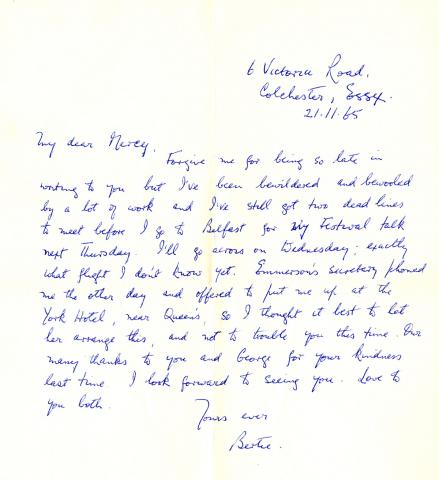 6 Victoria Road,
Colchester, Essex.
21.11.65
My dear Mercy,
Forgive me for being so late in
writing to you but I've been bewildered and
by a lot of work and I've still got two dead lines
to meet before I go to Belfast for my Festival talk
next Thursday. I'll go across on Wednesday; exactly
what flight I don't know yet. Emmerson's secretary phoned
me the other day and offered to put me up at the
York Hotel, near Queen's, so I thought it best to let
her arrange this, and not to trouble you this time. Our
many thanks to you and George for your kindness
last time. I look forward to seeing you. Love to
you both.
Yours ever
Bertie.